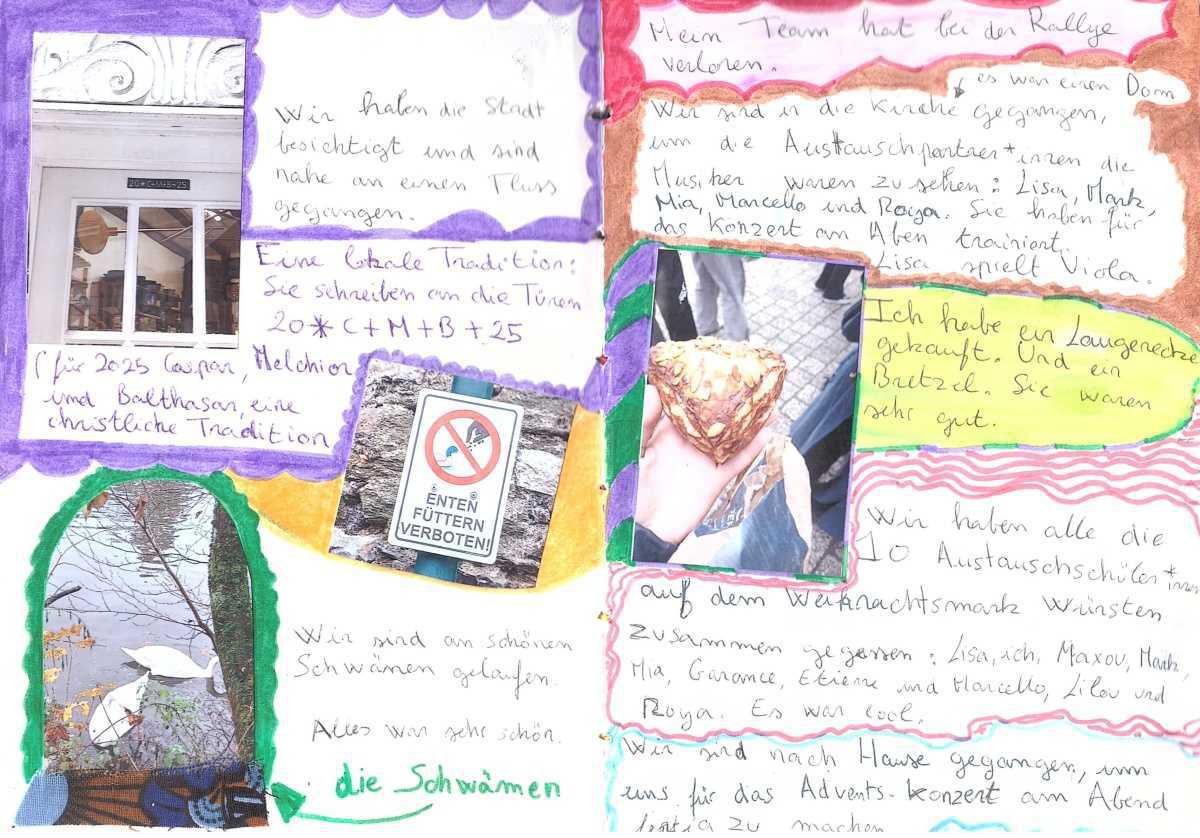 20*C+M+B+25
Wir haben die Stadt
besichtigt und sind
nahe an einen Fluss
gegangen.
Eine lokale Tradition:
Sie schreiben an die Türen
20 * C + M + B + 25
(für 2025 Caspar, Melchior
und Balthasar, eine
christliche Tradition
ENTEN
FÜTTERN
VERBOTEN!
Wir sind an schönen
Schwänen gelaufen.
Alles war sehr schön.
die Schwänen
Mein Team hat bei der Rallye
verloren.
es war einen Dom
Wir sind in die Kirche gegangen,
um die Austauschpartner*innen die
Musiker waren zu sehen: Lisa, Mark,
Mia, Marcello und Roya. Sie haben für
das Konzert am Aben trainiert.
Lisa spielt Viola.
Ich habe ein Laugenecke
gekauft. Und ein
Bretzel. Sie waren
sehr gut.
Wir haben alle die
10 Austauschschüler*innen
auf dem Weihnachtsmark Würsten
zusammen gegessen: Lisa, ich, Maxou, Mark,
Mia, Garance, Etienne und Marcello, Lilou und
Roya. Es war cool.
Wir sind nach Hause gegangen, um
uns für das Advents-konzert am Abend
fertig zu machen